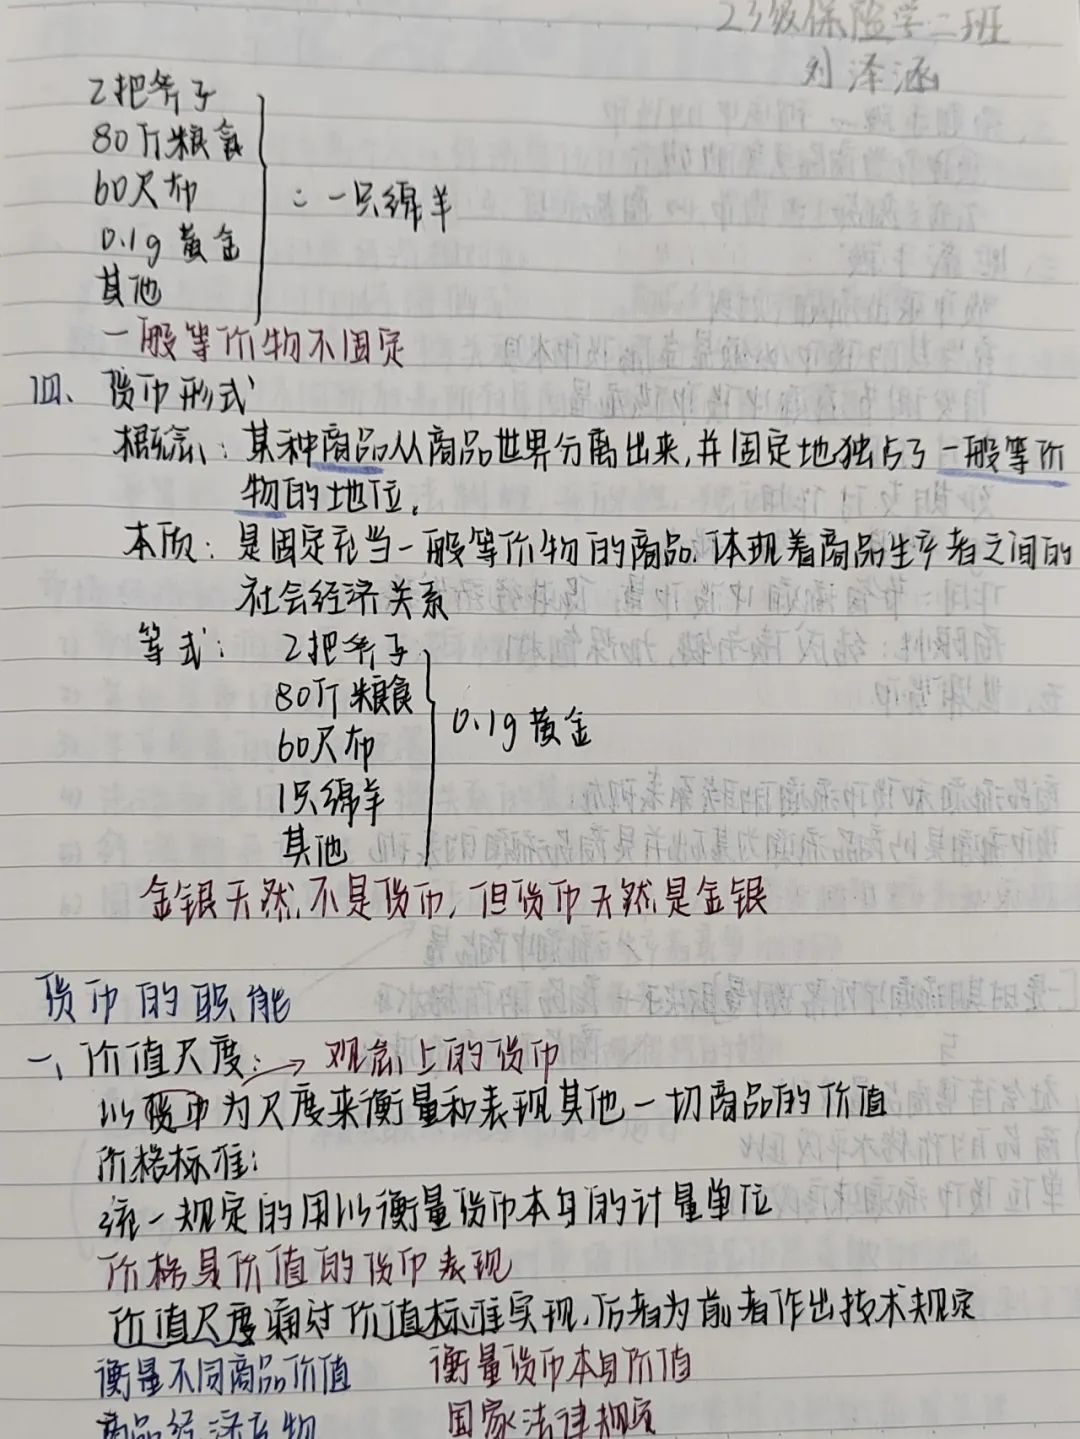 23级保险学二班
刘泽涵
2把斧子
80斤粮食
60尺布
0.1g 黄金
其他
: 一只绵羊
一般等价物不固定
四、货币形式
概念: 某种商品从商品世界分离出来,并固定地独占了一般等价
物的地位。
本质: 是固定充当一般等价物的商品.体现着商品生产者之间的
社会经济关系
等式: 2把斧子
80斤粮食
60尺布
1只绵羊
其他
0.1g黄金
金银天然不是货币,但货币天然是金银
货币的职能
一、价值尺度: → 观念上的货币
以货币为尺度来衡量和表现其他一切商品的价值
价格标准:
统一规定的用以衡量货币本身的计量单位
价格是价值的货币表现
价值尺度通过价值标准实现,后者为前者作出技术规定
衡量不同商品价值 衡量货币本身价值
商品经济产物 国家法律规定